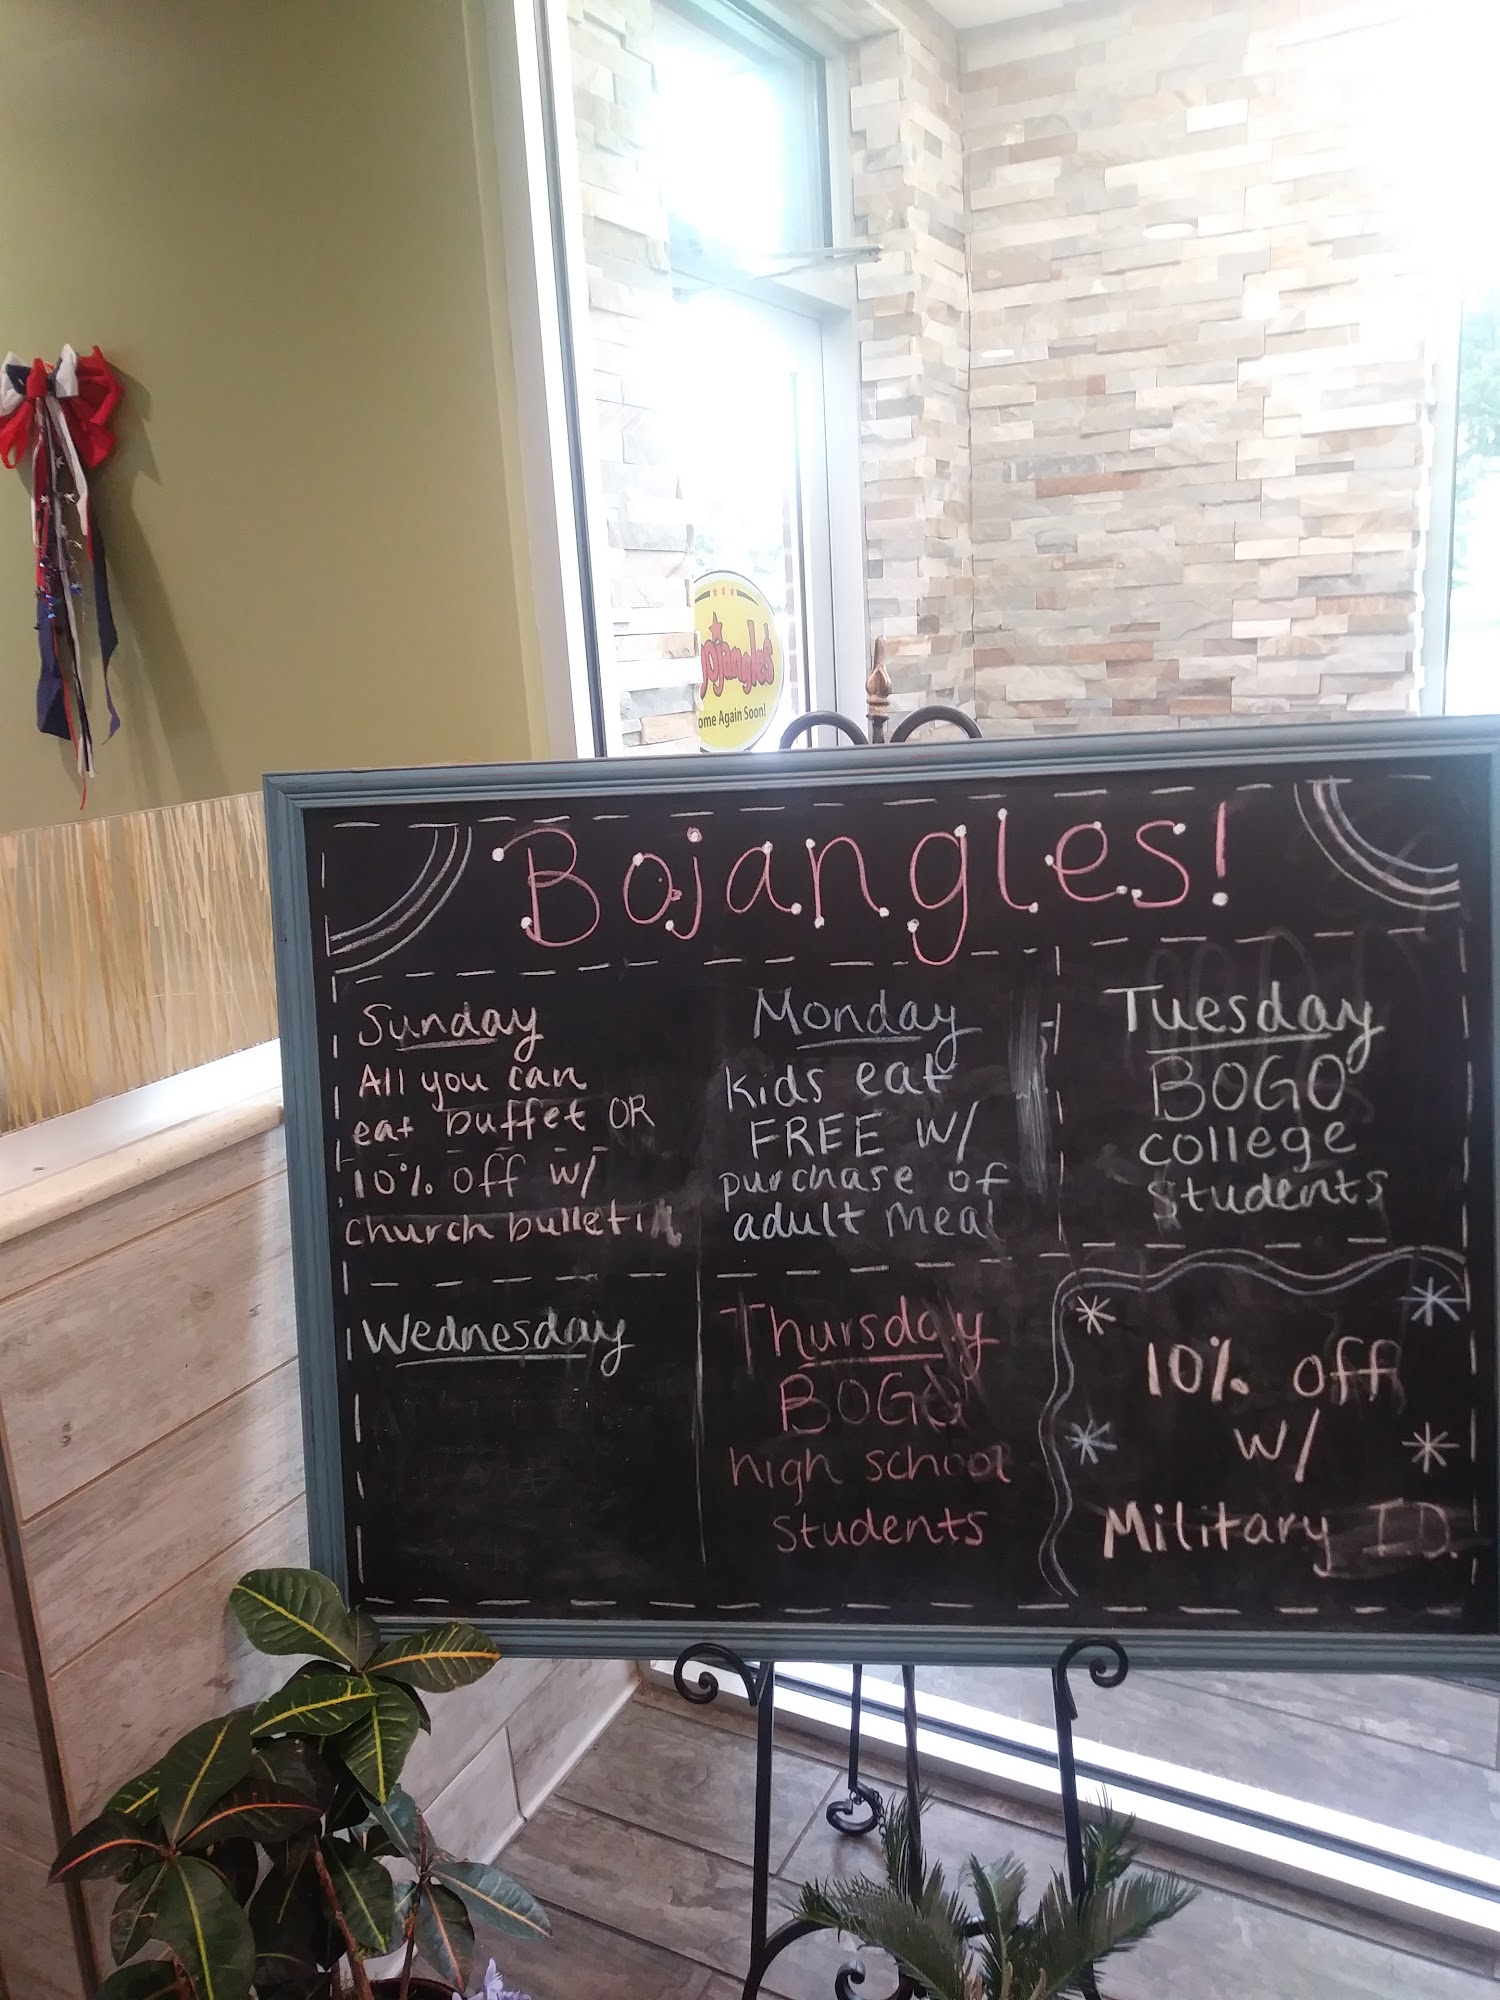 ojangles
ome Again Soon!
Bojangles!
Sunday
All you can
eat buffet OR
10% off w/
church bulletin
Monday
kids eat
FREE w/
purchase of
adult meal
Tuesday
BOGO
college
students
Wednesday
Thursday
BOGO
high school
students
10% off
w/
Military I.D.